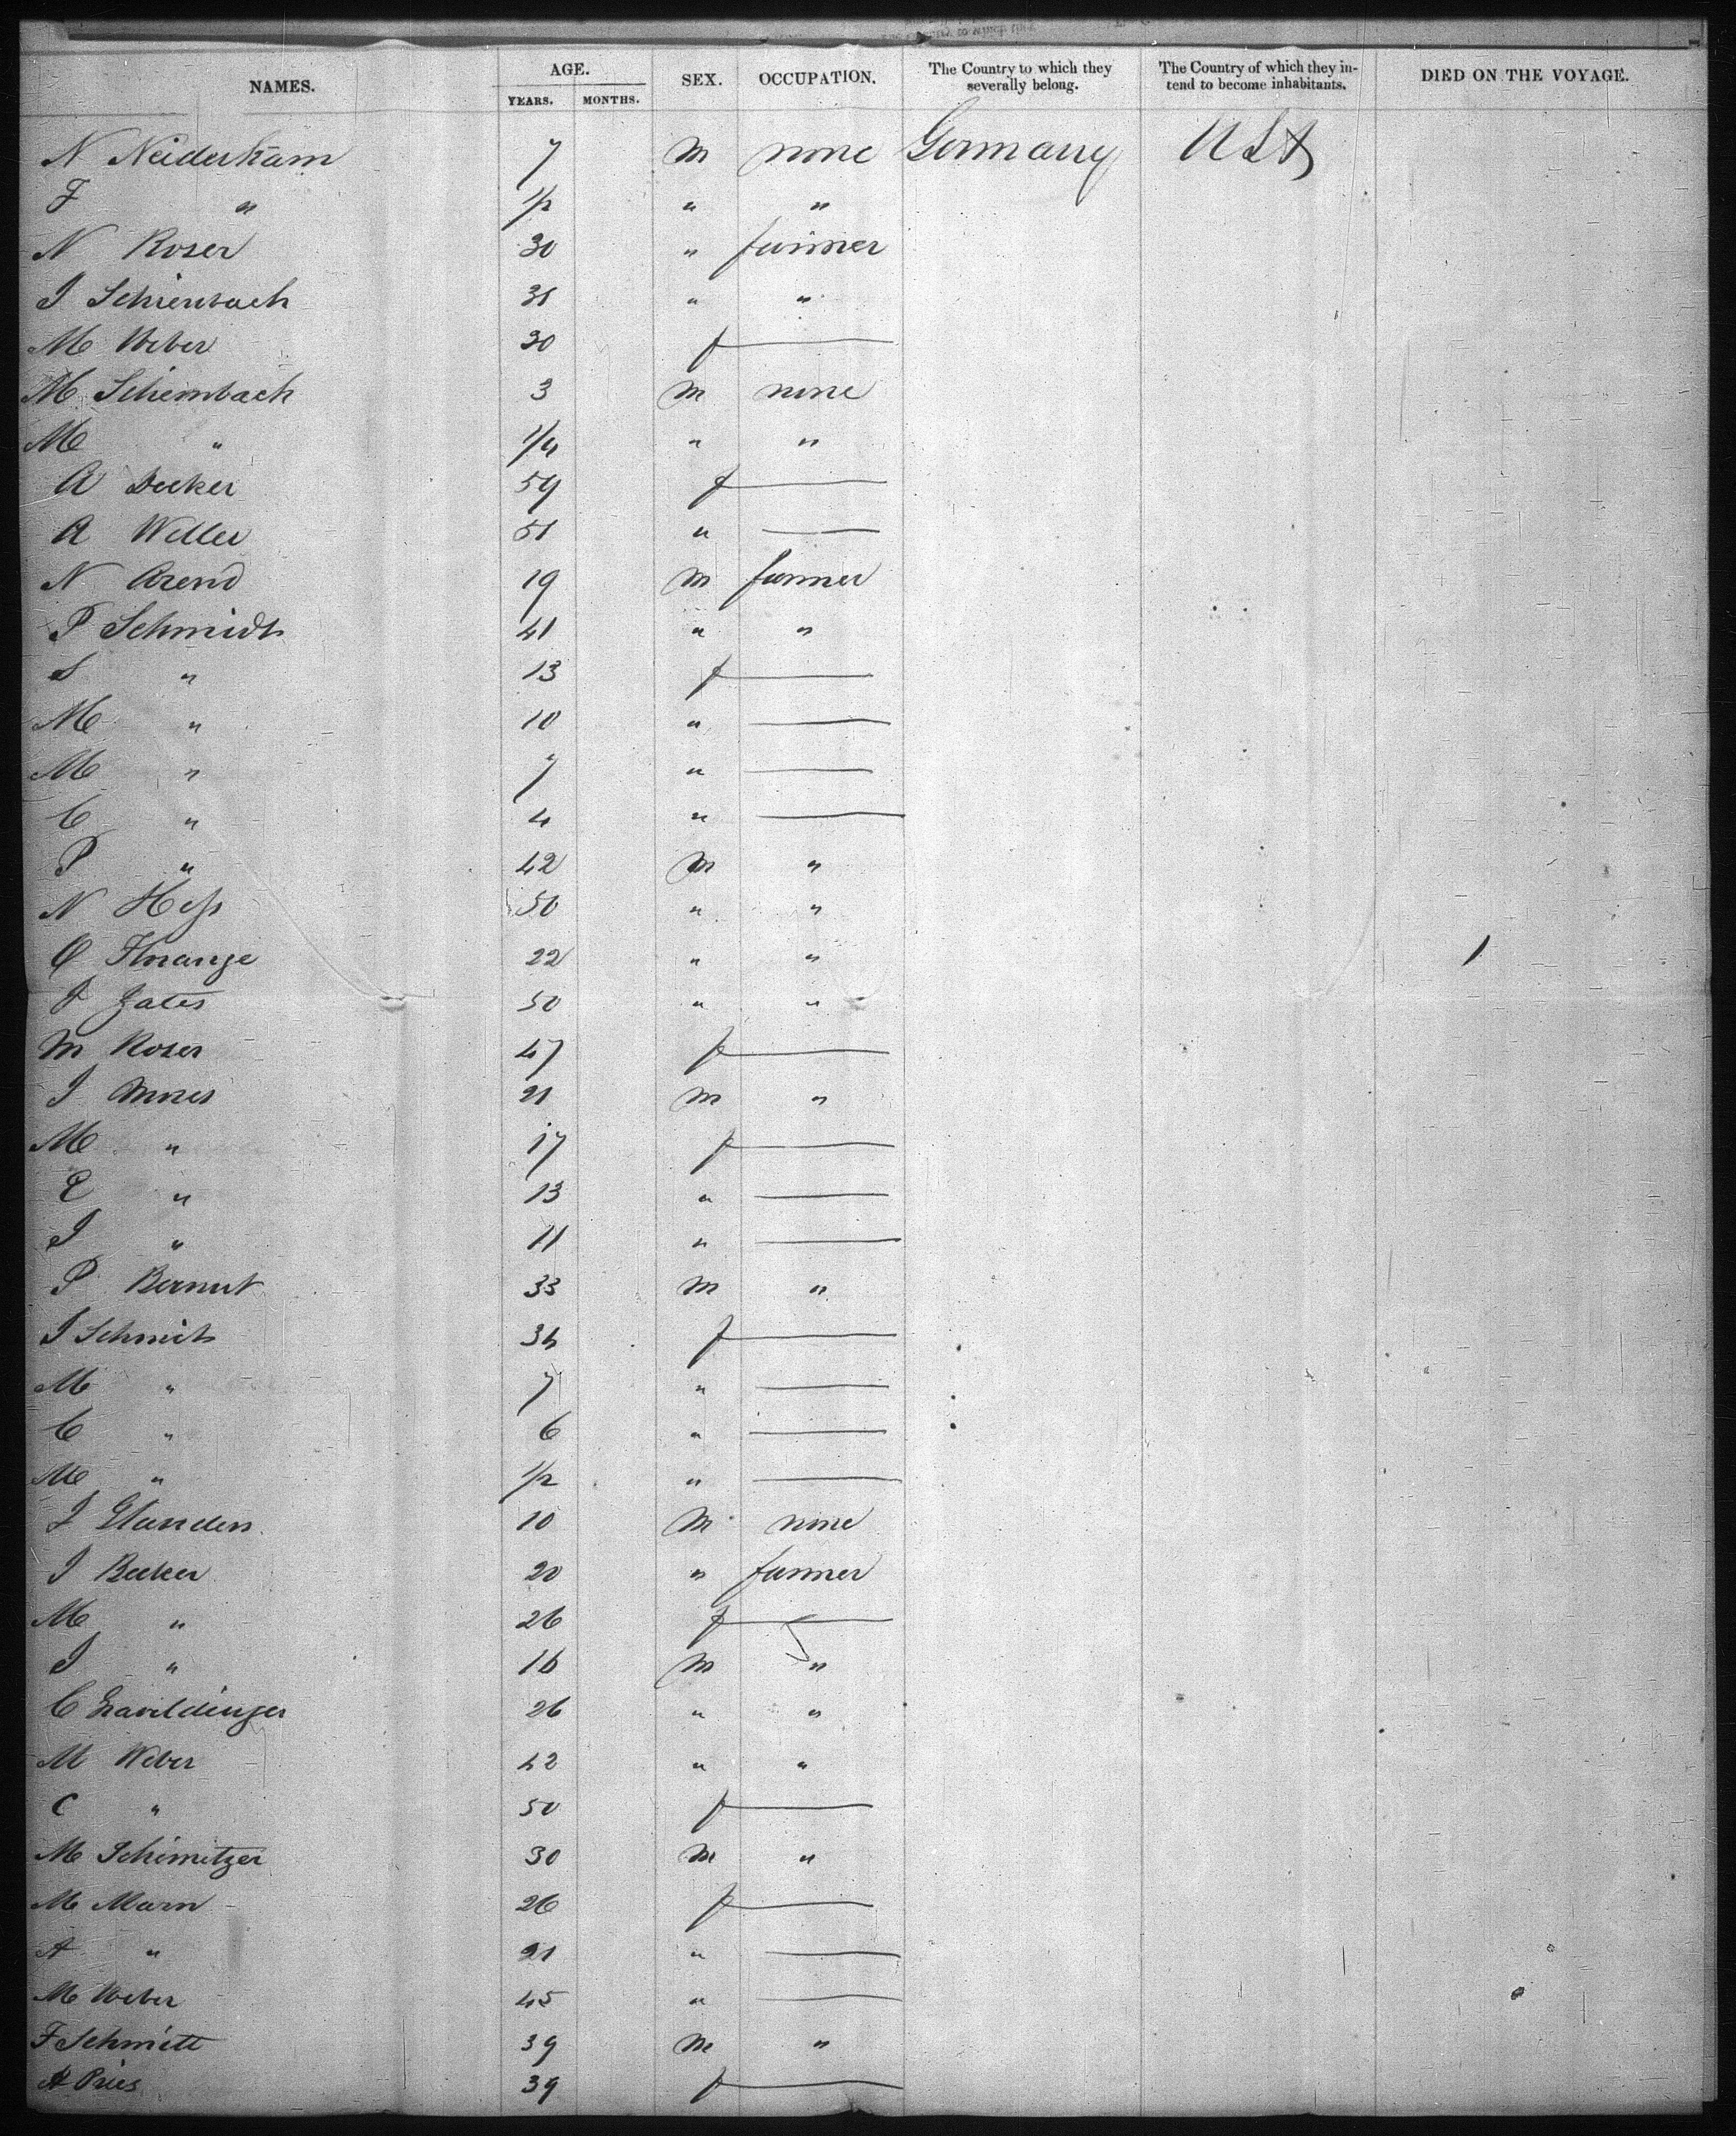 NAMES. AGE. YEARS. MONTHS. SEX. OCCUPATION. The Country to which they severally belong. The Country of which they intend to become inhabitants. DIED ON THE VOYAGE.
N Neiderkam 7 m none Germany USA
F " 1/2 " "
N Roser 30 " farmer
J Schienbach 31 " "
M Weber 30 f —
M Schienbach 3 m none
M " 1/4 " "
A Decker 59 f —
A Weller 51 " —
N Arend 19 m farmer
P Schmidt 41 " "
S " 13 f —
M " 10 " —
M " 7 " —
C " 4 " —
P " 42 m "
N Hess 50 " "
Florange 22 " "
Zates 50 " "
M Roser 47 f —
J 21 m "
M " 17 f —
E " 13 " —
J " 11 " —
P Bernut 33 m "
J Schmit 36 f —
M " 7 " —
C " 6 " —
M " 1/2 " —
J Glanden 10 m none
J Becker 20 " farmer
M " 26 f —
J " 16 m "
C 26 " "
M Weber 42 " "
C " 50 f —
M Schimitzer 30 m "
M Marn 26 f —
A " 21 " —
M Weber 45 " —
F Schmitt 39 m "
A Pries 39 f —